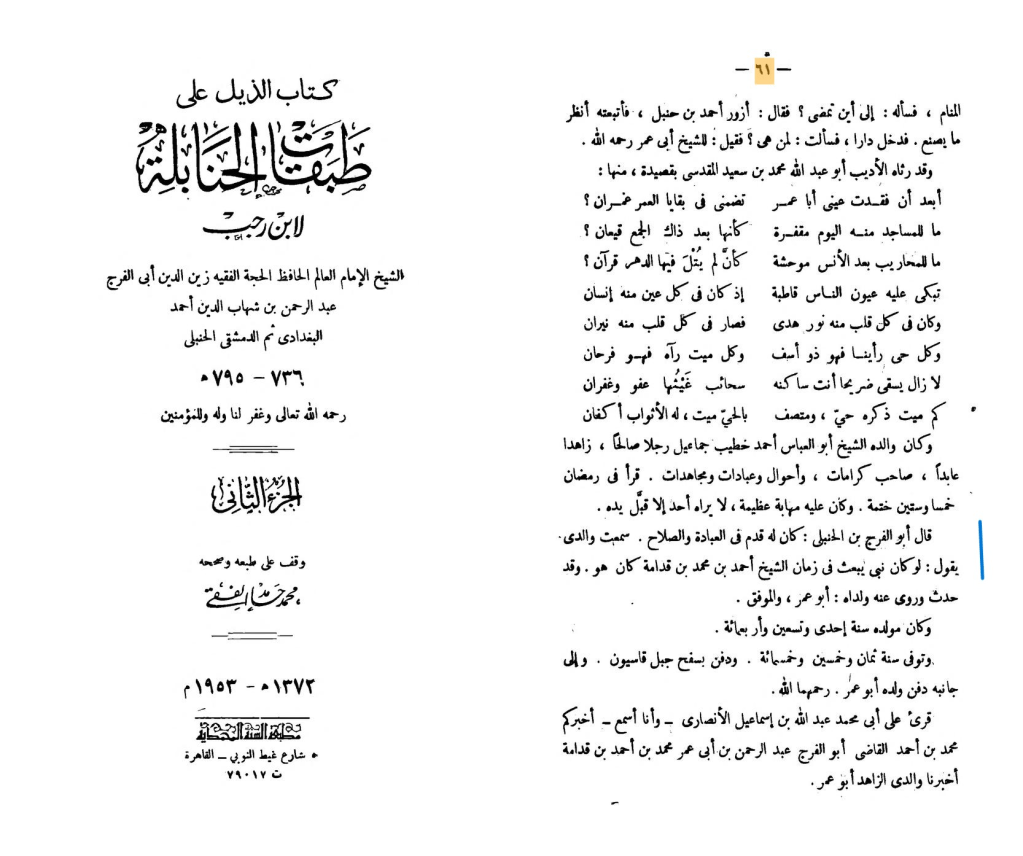 كتاب الذيل على
طبقات الحنابلة
لابن رجب
الشيخ الإمام العالم الحافظ الحجة الفقيه زين الدين أبى الفرج
عبد الرحمن بن شهاب الدين أحمد
البغدادى ثم الدمشقى الحنبلى
٧٣٦ – ٧٩٥ ه
رحمه الله تعالى وغفر لنا وله وللمؤمنين
الجزء الثانى
وقف على طبعه وصححه
محمد حامد الفقي
١٣٧٢ ه – ١٩٥٣ م
مطبعة السنة المحمدية
شارع غيط النوبي – القاهرة
ت ٧٩٠١٧
— ٦١ —
المنام ، فسأله : إلى أين تمضى ؟ فقال : أزور أحمد بن حنبل ، فأتبعته أنظر
ما يصنع . فدخل دارا ، فسألت : لمن هى ؟ فقيل : للشيخ أبى عمر رحمه الله .
وقد رثاه الأديب أبو عبد الله محمد بن سعيد المقدسى بقصيدة ، منها :
أبعد أن فقدت عينى أبا عمر تضمنى فى بقايا العمر عمران ؟
ما للمساجد منه اليوم مقفرة كأنها بعد ذاك الجمع قيعان ؟
ما للمحاريب بعد الأنس موحشة كأنَّ لم يُتْلَ فيها الدهر قرآن ؟
تبكى عليه عيون الناس قاطبة إذ كان فى كل عين منه إنسان
وكان فى كل قلب منه نور هدى فصار فى كل قلب منه نيران
وكل حى رأينا فهو ذو أسف وكل ميت رآه فهو فرحان
لا زال يسقى ضريحا أنت ساكنه سحائب غَيْثُها عفو وغفران
كم ميت ذكره حيّ ، ومتصف بالحيّ ميت ، له الأثواب أكفان
وكان والده الشيخ أبو العباس أحمد خطيب جماعيل رجلا صالحًا ، زاهدا
عابداً ، صاحب كرامات ، وأحوال وعبادات ومجاهدات . قرأ فى رمضان
خمسا وستين ختمة . وكان عليه مهابة عظيمة ، لا يراه أحد إلا قبَّل يده .
قال أبو الفرج بن الحنبلى : كان له قدم فى العبادة والصلاح . سمعت والدى
يقول : لو كان نبي يبعث فى زمان الشيخ أحمد بن محمد بن قدامة كان هو . وقد
حدث وروى عنه ولداه : أبو عمر ، والموفق .
وكان مولده سنة إحدى وتسعين وأربعمائة .
وتوفى سنة ثمان وخمسين وخمسمائة . ودفن بسفح جبل قاسيون . وإلى
جانبه دفن ولده أبو عمر . رحمهما الله .
قرئ على أبى محمد عبد الله بن إسماعيل الأنصارى – وأنا أسمع – أخبركم
محمد بن أحمد القاضى أبو الفرج عبد الرحمن بن أبى عمر محمد بن أحمد بن قدامة
أخبرنا والدى الزاهد أبو عمر .